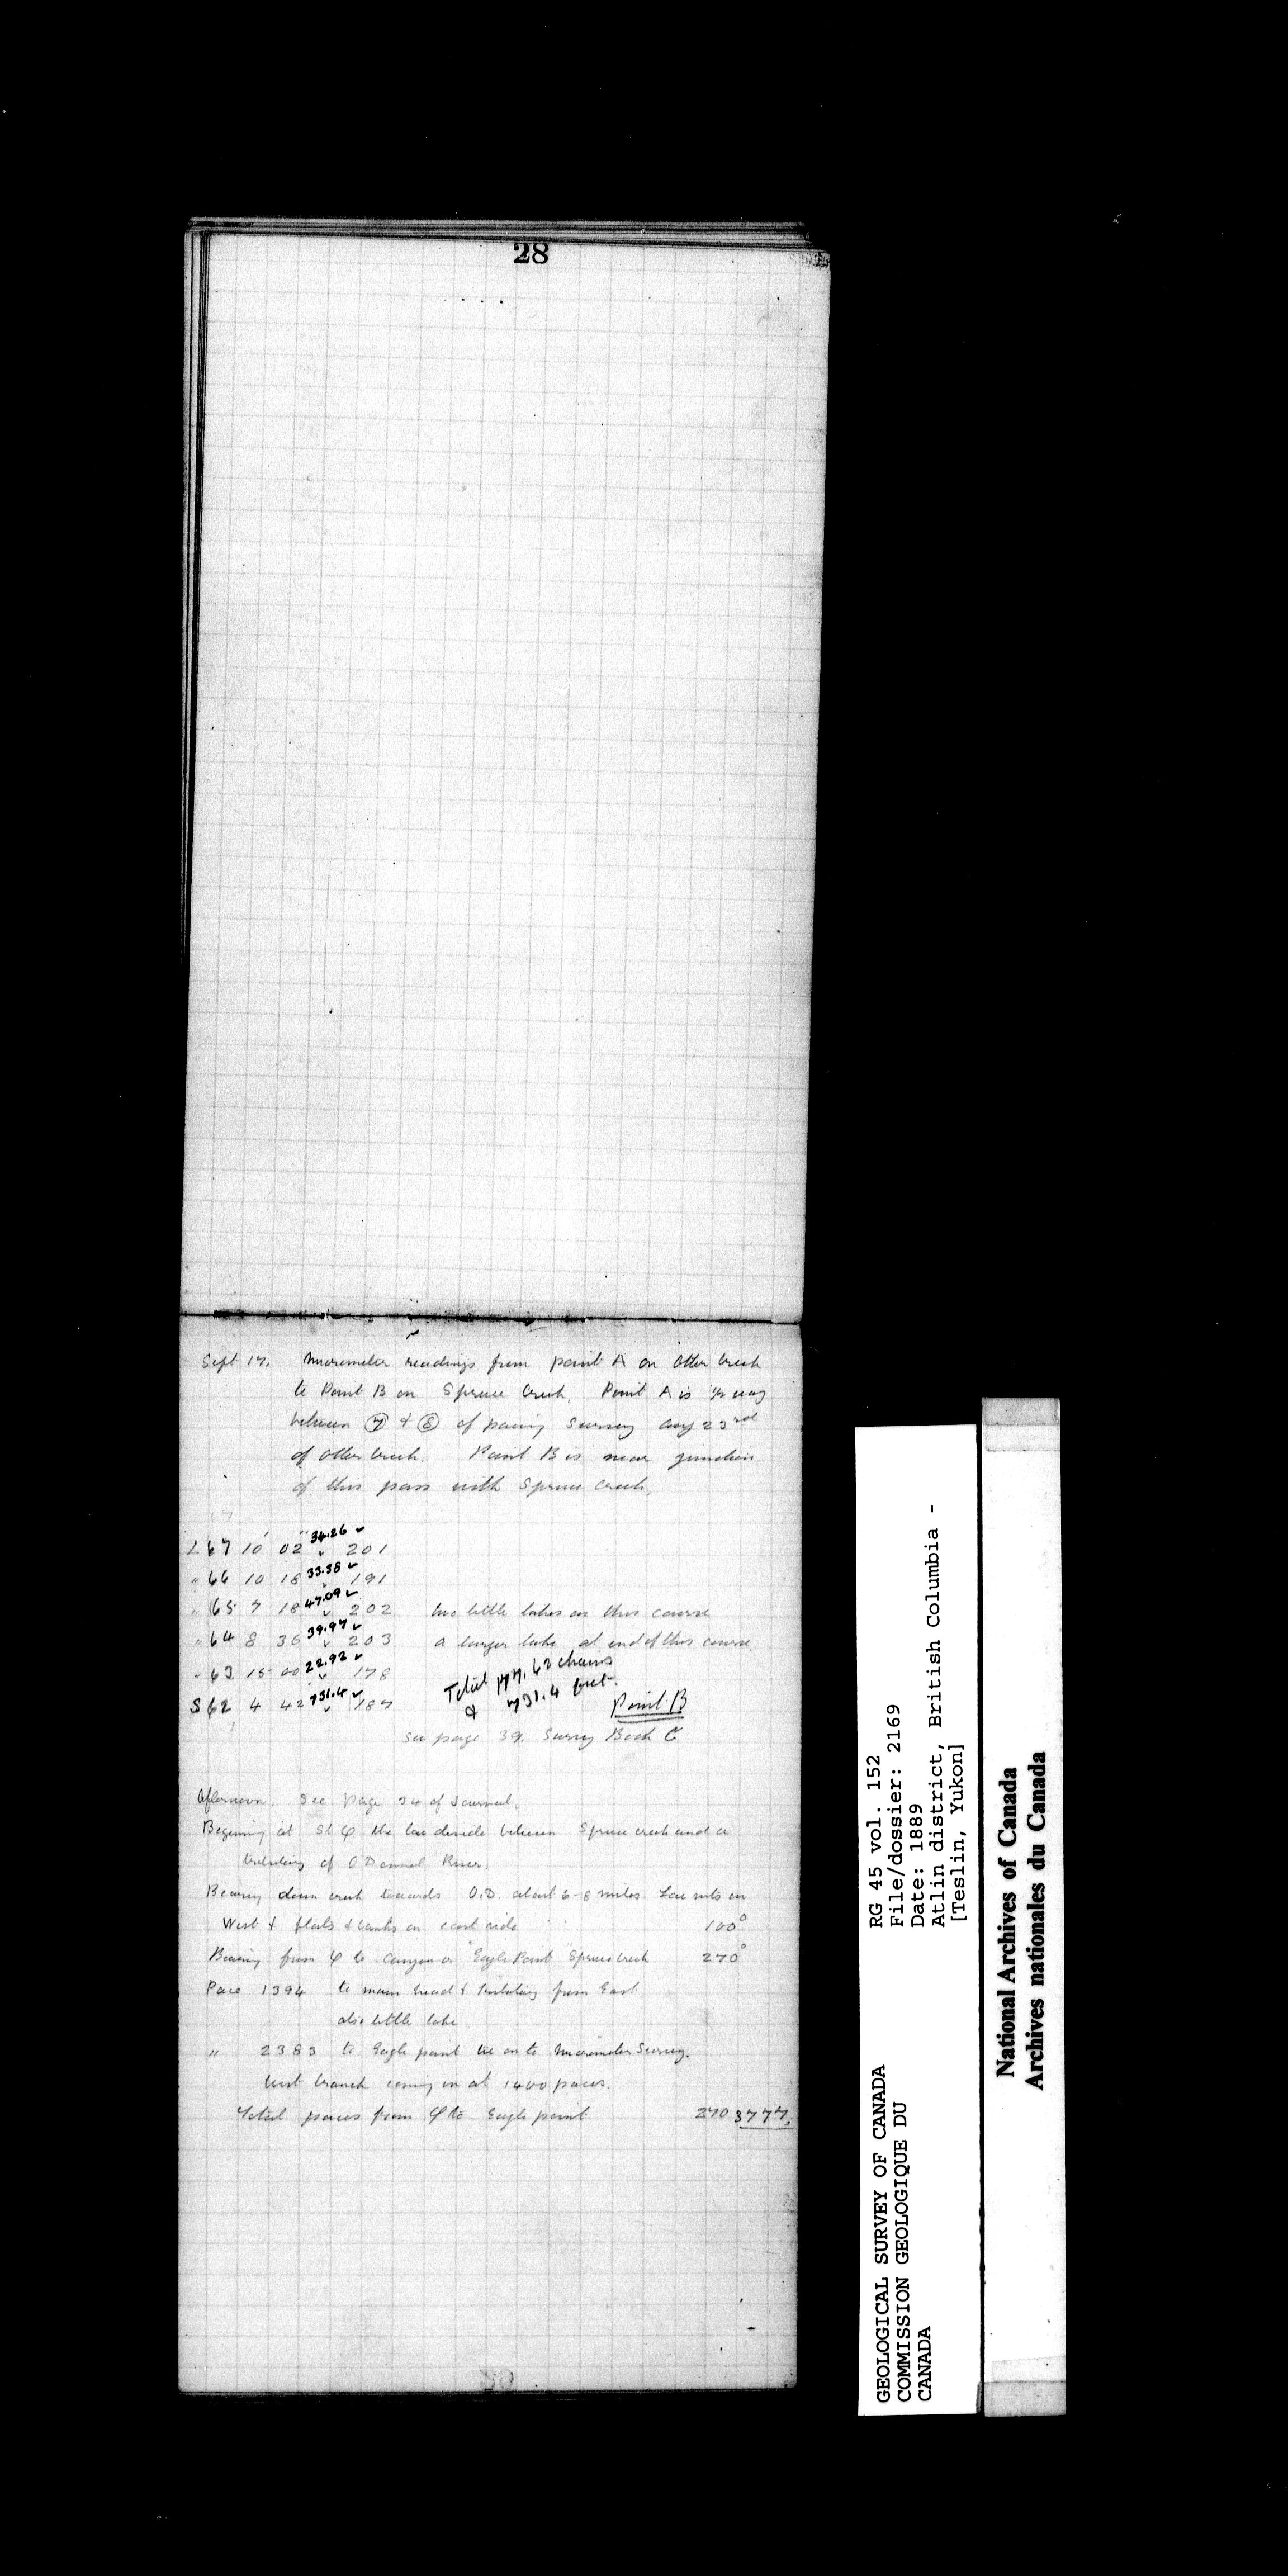 28
Sept 17. Micrometer readings from point A on Otter Creek
to Point B on Spruce Creek. Point A is ½ way
between ⑦ & ⑧ of pacing survey Aug 23rd
of Otter Creek. Point B is near junction
of this pass with Spruce Creek.
L 67 10' 02" 34.26 ✓ 201
" 66 10 18 33.38 ✓ 191
" 65 7 18 47.09 ✓ 202 two little lakes on this course
" 64 8 36 39.97 ✓ 203 a larger lake at end of this course
" 63 15 00 22.92 ✓ 178
S 62 4 42 731.4 ✓ 187
Total 177.62 chains
& 731.4 feet.
Point B
See page 39. Survey Book C
Afternoon. See page 34 of Journal.
Beginning at St φ the low divide between Spruce creek and a
tributary of O'Donnel River.
Bearing down creek towards O.D. about 6-8 miles Low mts on
West & flats & banks on east side 100°
Bearing from φ to Canyon or "Eagle Point" Spruce Creek 270°
Pace 1394 to main head & tributary from East
also little lake
" 2383 to Eagle point tie on to Micrometer Survey.
West branch coming in at 1400 paces.
Total paces from φ to Eagle point 270 3777.
GEOLOGICAL SURVEY OF CANADA
COMMISSION GEOLOGIQUE DU
CANADA
RG 45 vol. 152
File/dossier: 2169
Date: 1889
Atlin district, British Columbia -
[Teslin, Yukon]
National Archives of Canada
Archives nationales du Canada